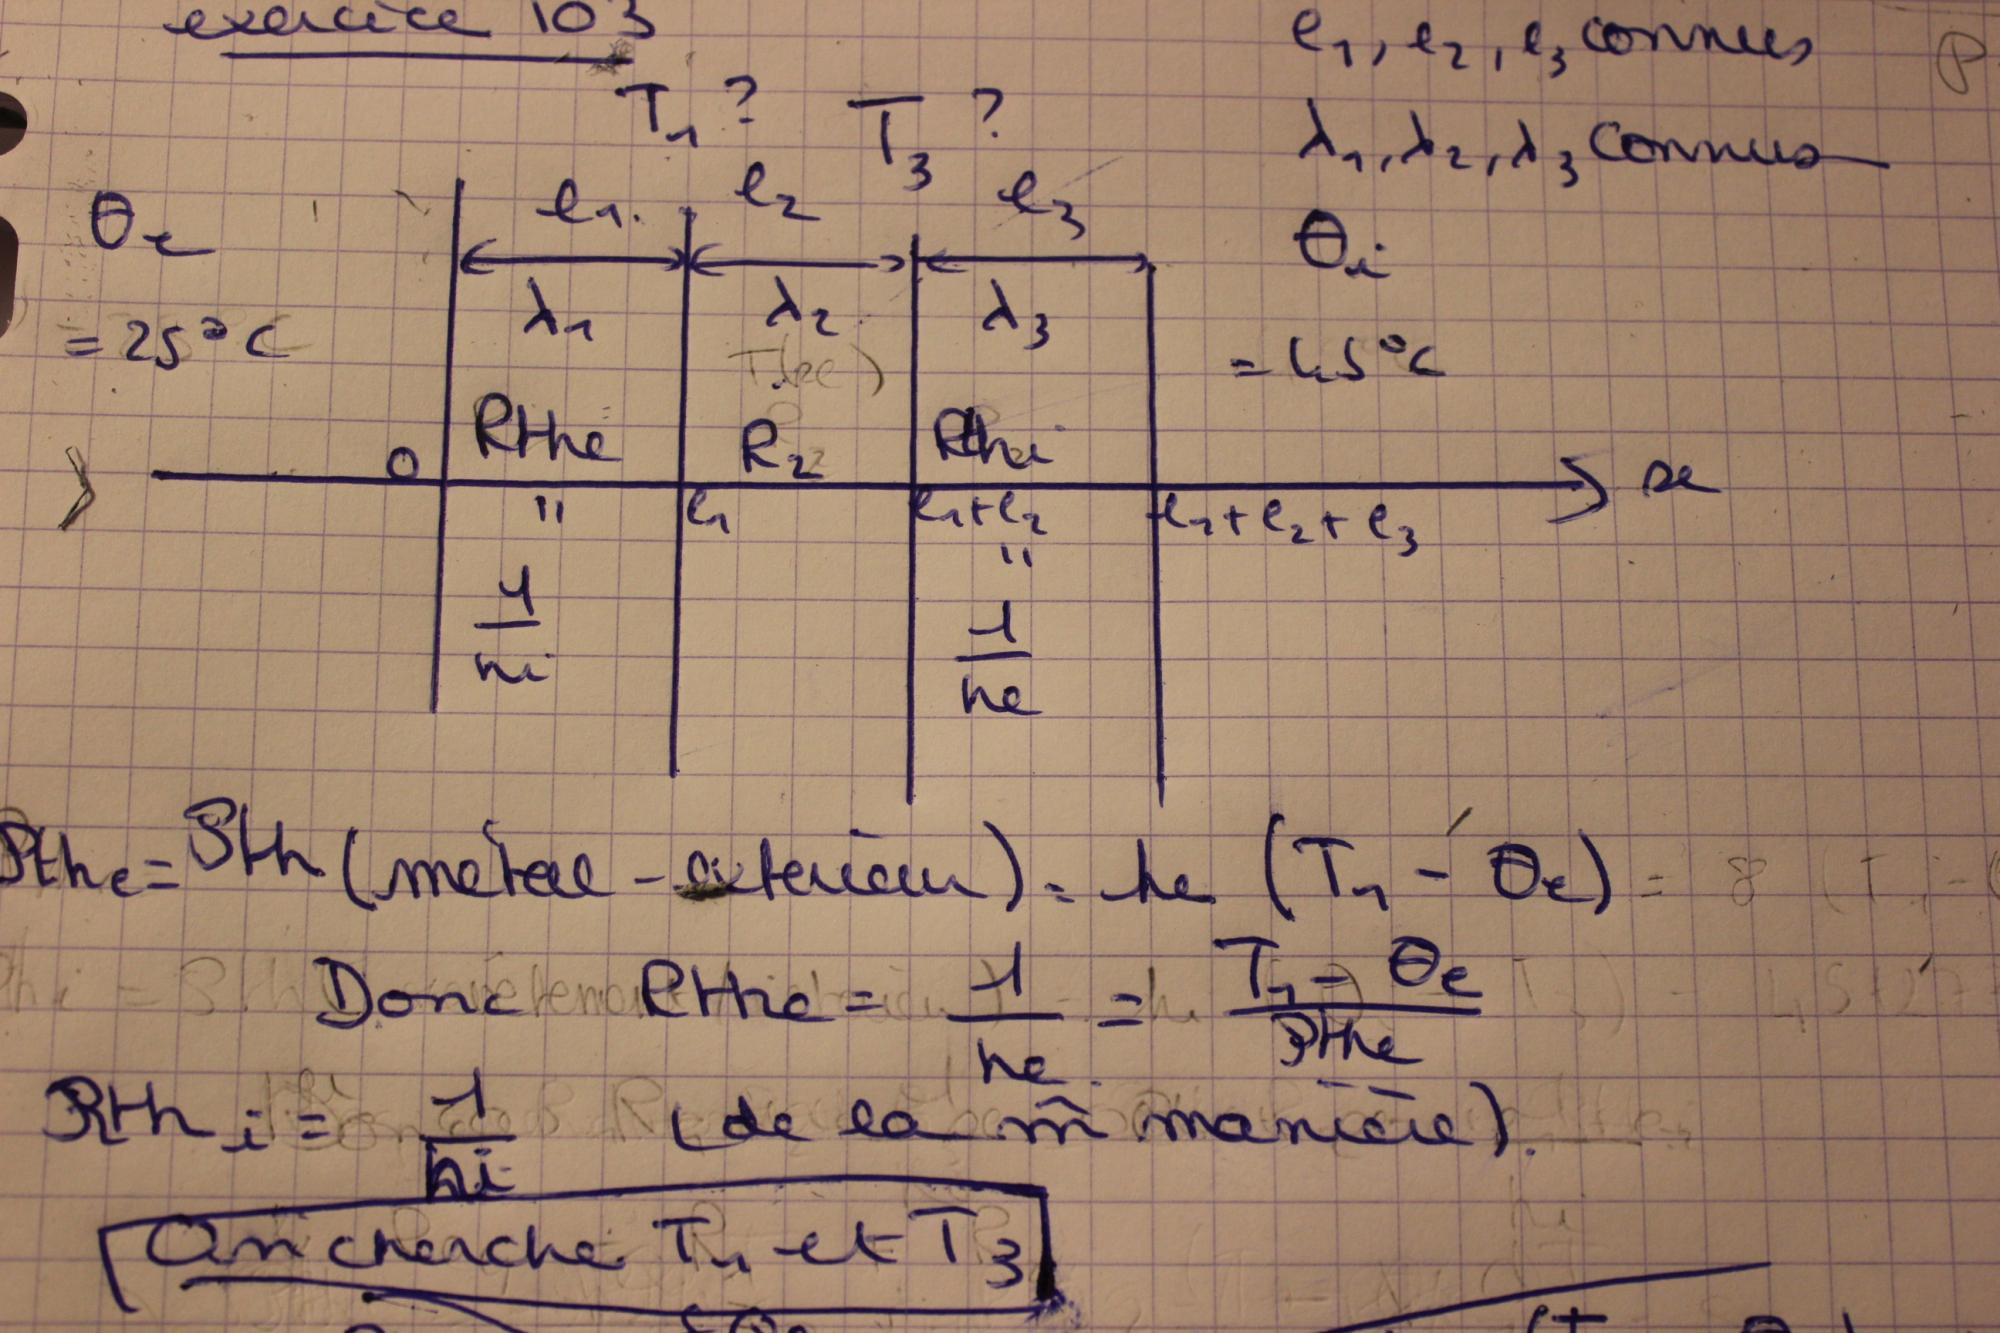 exercice 103
e₁, e₂, e₃ connues
T₁ ? T₃ ?
λ₁, λ₂, λ₃ connues
θe e₁ e₂ e₃ θi
= 25°C λ₁ λ₂ λ₃ = 45°C
RThe R₂ Rthi
0 e₁ e₁+e₂ e₁+e₂+e₃ x
" "
1/hi 1/he
Pthe = Pth (métal - extérieur) = he (T₁ - θe) = 8
Donc RThe = 1/he = T₁ - θe / PThe
RThi = 1/hi (de la m̂ manière).
On cherche T₁ et T₃